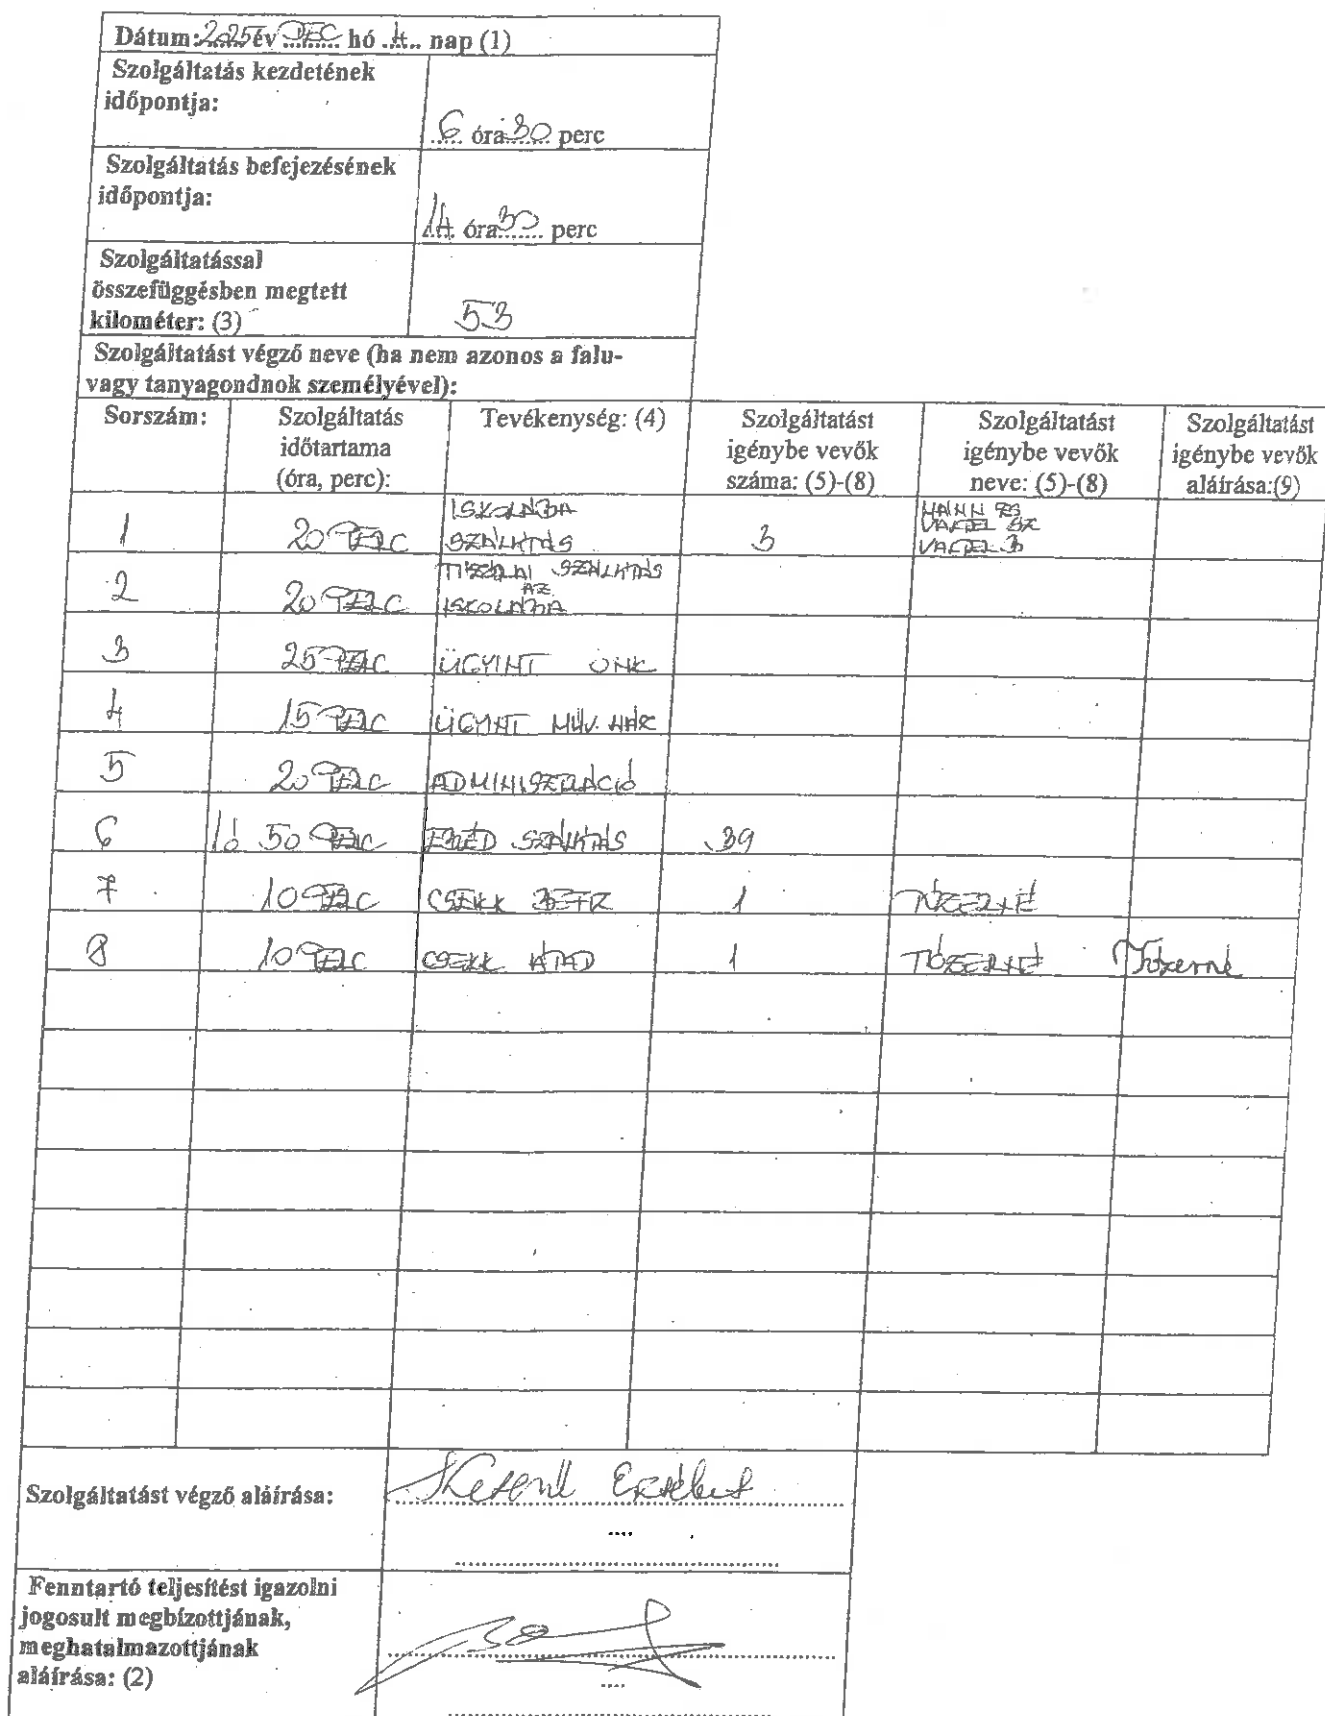 Dátum: 2025 év DEC hó 4. nap (1)
Szolgáltatás kezdetének
időpontja:
6 óra 30 perc
Szolgáltatás befejezésének
időpontja:
14 óra 30 perc
Szolgáltatással
összefüggésben megtett
kilométer: (3)
53
Szolgáltatást végző neve (ha nem azonos a falu-
vagy tanyagondnok személyével):
Sorszám: Szolgáltatás időtartama (óra, perc): Tevékenység: (4) Szolgáltatást igénybe vevők száma: (5)-(8) Szolgáltatást igénybe vevők neve: (5)-(8) Szolgáltatást igénybe vevők aláírása:(9)
1 20 PERC ISKOLÁBA SZÁLLÍTÁS 3
2 20 PERC SZÁLLÍTÁS AZ ISKOLÁBA
3 25 PERC ÜGYINT ÖNK
4 15 PERC ÜGYINT MŰV. HÁZ
5 20 PERC ADMINISZTRÁCIÓ
6 1ó 50 PERC EBÉD SZÁLLÍTÁS 39
7 10 PERC CSEKK BEFIZ 1 TŐZERNÉ
8 10 PERC CSEKK ÁTAD 1 TŐZERNÉ Tőzerné
Szolgáltatást végző aláírása:
Erzsébet
Fenntartó teljesítést igazolni
jogosult megbízottjának,
meghatalmazottjának
aláírása: (2)